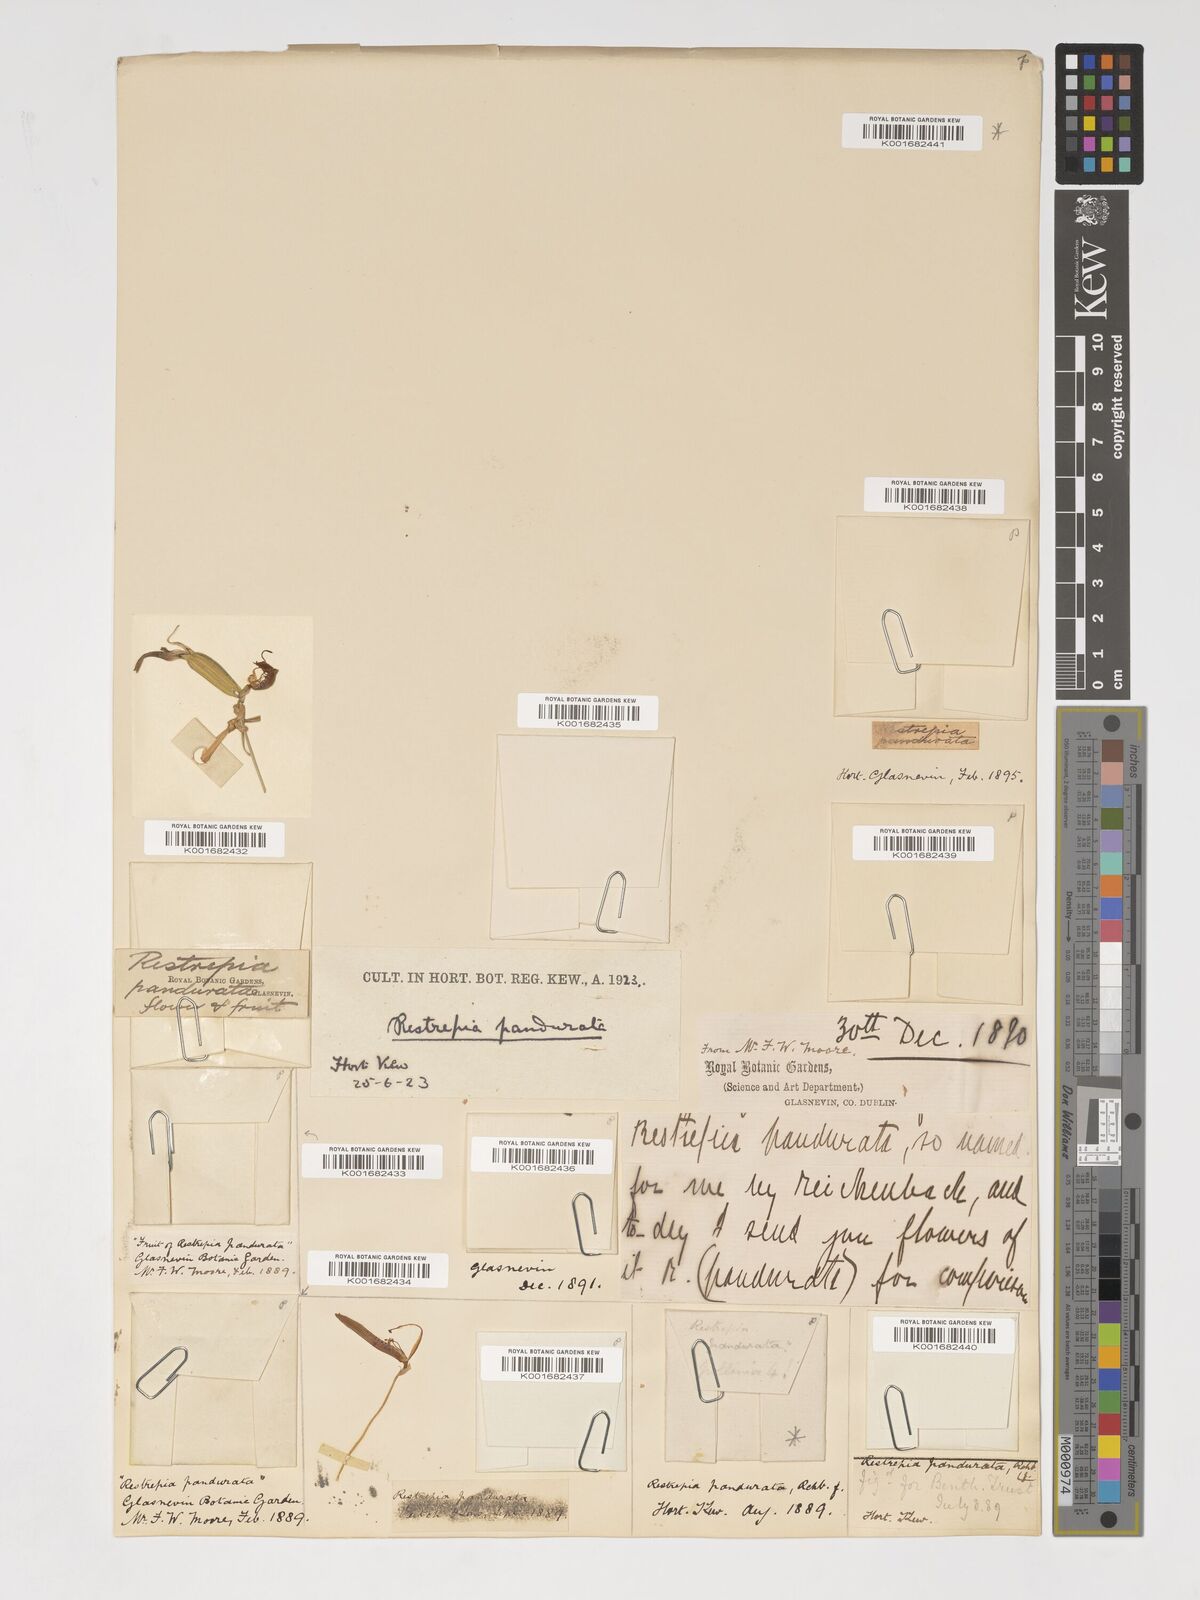 ROYAL BOTANIC GARDENS KEW
K001682441
ROYAL BOTANIC GARDENS KEW
K001682438
Restrepia
pandurata
Hort. Glasnevin, Feb. 1895.
ROYAL BOTANIC GARDENS KEW
K001682435
ROYAL BOTANIC GARDENS KEW
K001682439
ROYAL BOTANIC GARDENS KEW
K001682432
Restrepia
ROYAL BOTANIC GARDENS,
pandurata
GLASNEVIN,
flower & fruit
CULT. IN HORT. BOT. REG. KEW., A. 1923.
Restrepia pandurata
Hort Kew
25-6-23
30th Dec. 1890
From Mr. F. W. Moore.
Royal Botanic Gardens,
(Science and Art Department,)
GLASNEVIN, CO. DUBLIN.
Restrepia pandurata, "so named
for me by Reichenbach, and
to-day I send you flowers of
it R. (pandurata) for comparison
ROYAL BOTANIC GARDENS KEW
K001682433
ROYAL BOTANIC GARDENS KEW
K001682436
Glasnevin
Dec. 1891.
"Fruit of Restrepia pandurata"
Glasnevin Botanic Garden.
Mr. F. W. Moore, Feb. 1889.
ROYAL BOTANIC GARDENS KEW
K001682434
ROYAL BOTANIC GARDENS KEW
K001682437
Restrepia
pandurata
ROYAL BOTANIC GARDENS KEW
K001682440
"Restrepia pandurata"
Glasnevin Botanic Garden.
Mr. F. W. Moore, Feb. 1889.
Restrepia pandurata
1889.
Restrepia pandurata, Rchb. f.
Hort. Kew. Aug. 1889.
Restrepia pandurata, Rchb.
f.
Fig d. for Benth. Trust
July 8.89
Hort. Kew.
Kew
Royal Botanic Gardens
copyright reserved
0 1 2 3 4 5 6 7 8 9 10
cm
inches
centimeters
Density
Don Williams
M000974